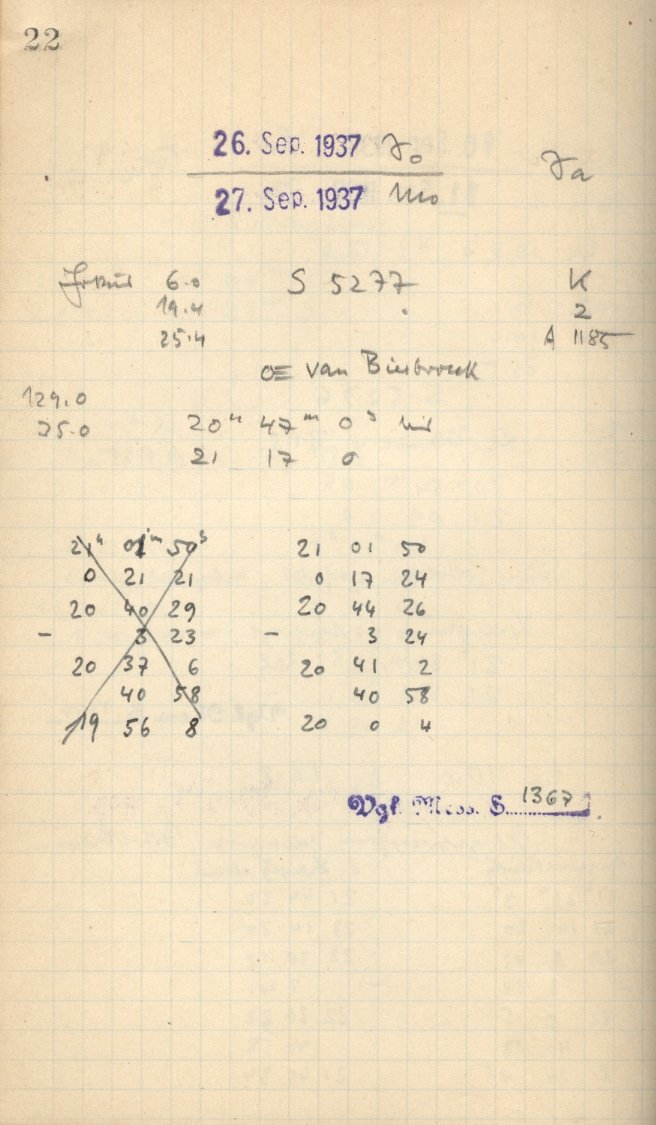 22
26. Sep. 1937 So
27. Sep. 1937 Mo
6.0 S 5277 K
19.4 2
25.4 A 1185
van Biesbroeck
129.0
35.0 20h 47m 0s
21 17 0
21h 01m 50s 21 01 50
0 21 21 0 17 24
20 40 29 20 44 26
- 3 23 - 3 24
20 37 6 20 41 2
40 58 40 58
19 56 8 20 0 4
Vgl. Mess. S. 1367